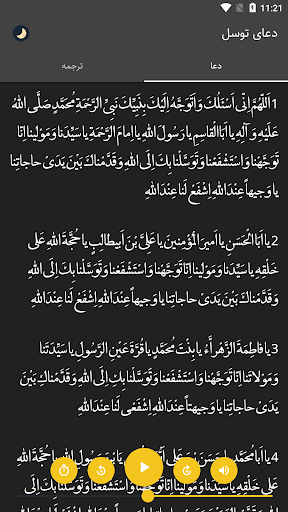 11:21
دعای توسل
دعا
ترجمه
1اَللّهُمَّ اِنّى اَسْئَلُكَ وَاَتَوَجَّهُ اِلَيْكَ بِنَبِيِّكَ نَبِىِّ الرَّحْمَةِ مُحَمَّدٍ صَلَّى اللهُ
عَلَيْهِ وَ آلِهِ يا اَبَاالْقاسِمِ يا رَسُولَ اللهِ يا اِمامَ الرَّحْمَةِ يا سَيِّدَنا وَمَوْلينا اِنّا
تَوَجَّهْنا وَاسْتَشْفَعْنا وَتَوَسَّلْنا بِكَ اِلَى اللهِ وَقَدَّمْناكَ بَيْنَ يَدَىْ حاجاتِنا
يا وَجيهاً عِنْدَ اللهِ اِشْفَعْ لَنا عِنْدَاللهِ
2يا اَبَاالْحَسَنِ يا اَميرَ الْمُؤْمِنينَ يا عَلِىَّ بْنَ اَبيطالِبٍ يا حُجَّةَ اللهِ عَلى
خَلْقِهِ يا سَيِّدَنا وَمَوْلينا اِنّا تَوَجَّهْنا وَاسْتَشْفَعْنا وَتَوَسَّلْنا بِكَ اِلَى اللهِ
وَقَدَّمْناكَ بَيْنَ يَدَىْ حاجاتِنا يا وَجيهاً عِنْدَ اللهِ اِشْفَعْ لَنا عِنْدَ اللهِ
3يا فاطِمَةَ الزَّهْراَّءُ يا بِنْتَ مُحَمَّدٍ يا قُرَّةَ عَيْنِ الرَّسُولِ يا سَيِّدَتَنا
وَمَوْلاتَنا اِنّا تَوَجَّهْنا وَاسْتَشْفَعْنا وَتَوَسَّلْنا بِكِ اِلَى اللهِ وَقَدَّمْناكِ بَيْنَ
يَدَىْ حاجاتِنا يا وَجيهَةً عِنْدَ اللهِ اِشْفَعى لَنا عِنْدَ اللهِ
4يا اَبا مُحَمَّدٍ يا حَسَنَ بْنَ عَلِىٍّ يَا بْنَ رَسُولِ اللهِ يا حُجَّةَ اللهِ
عَلى خَلْقِهِ يا سَيِّدَنا اِنّا تَوَجَّهْنا وَاسْتَشْفَعْنا
وَتَوَسَّلْنا بِكَ اِلَى اللهِ وَقَدَّمْناكَ بَيْنَ يَدَىْ حاجاتِنا يا وَجيهاً عِنْدَ اللهِ